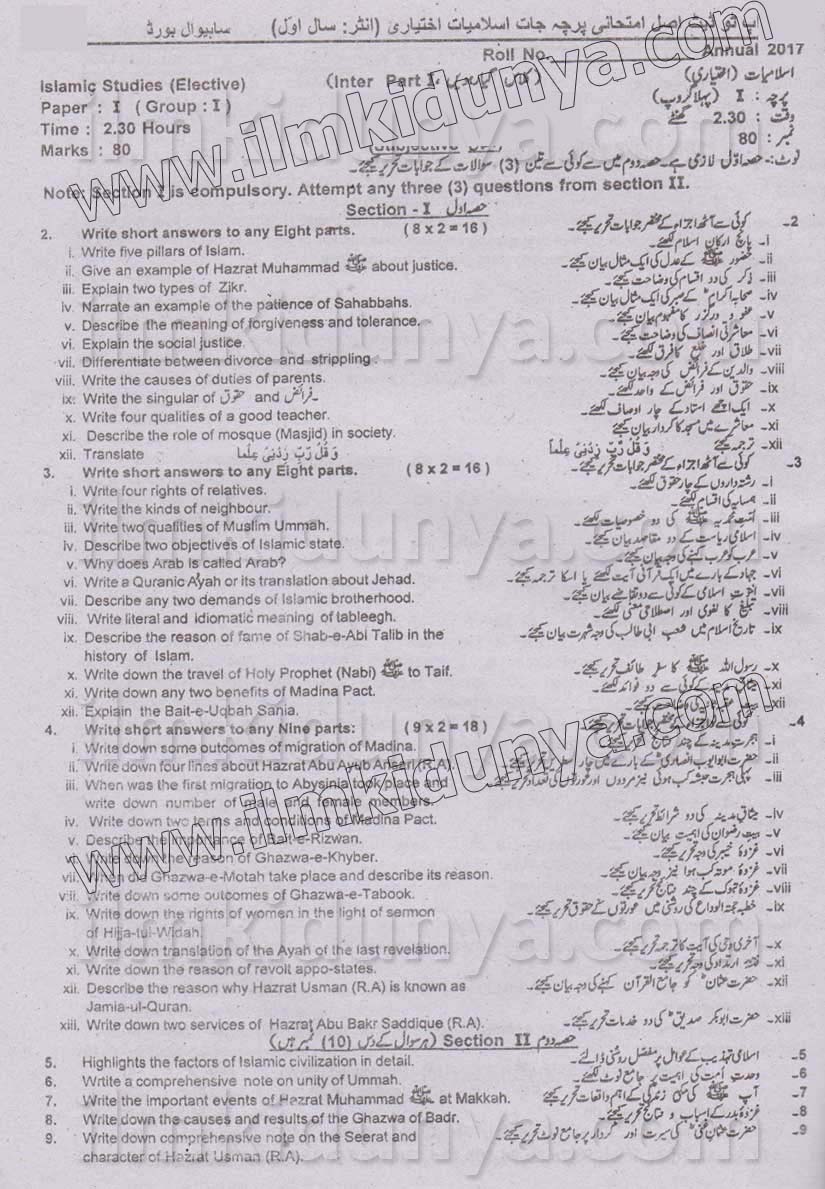 اپ ٹو ڈیٹ اصل امتحانی پرچہ جات اسلامیات اختیاری (انٹر: سال اوّل) ساہیوال بورڈ
Roll No. Annual 2017
Islamic Studies (Elective) (Inter Part I اسلامیات (اختیاری)
Paper : I ( Group : I ) پرچہ : I (پہلا گروپ)
Time : 2.30 Hours وقت : 2.30 گھنٹے
Marks : 80 نمبر : 80
نوٹ:۔ حصہ اوّل لازمی ہے۔ حصہ دوم میں سے کوئی سے تین (3) سوالات کے جوابات تحریر کیجئے۔
Note: Section I is compulsory. Attempt any three (3) questions from section II.
Section - I حصہ اول
2. Write short answers to any Eight parts. ( 8 x 2 = 16 ) کوئی سے آٹھ اجزاء کے مختصر جوابات تحریر کیجئے۔ -2
i. Write five pillars of Islam. پانچ ارکانِ اسلام لکھئے۔ -i
ii. Give an example of Hazrat Muhammad ﷺ about justice. حضور ﷺ کے عدل کی ایک مثال بیان کیجئے۔ -ii
iii. Explain two types of Zikr. ذکر کی دو اقسام کی وضاحت کیجئے۔ -iii
iv. Narrate an example of the patience of Sahabbahs. صحابہ اکرامؓ کے صبر کی ایک مثال بیان کیجئے۔ -iv
v. Describe the meaning of forgiveness and tolerance. عفو و درگزر کا مفہوم بیان کیجئے۔ -v
vi. Explain the social justice. معاشرتی انصاف کی وضاحت کیجئے۔ -vi
vii. Differentiate between divorce and strippling . طلاق اور خلع کا فرق لکھئے۔ -vii
viii. Write the causes of duties of parents. والدین کے فرائض کی وجہ بیان کیجئے۔ -viii
ix. Write the singular of حقوق and فرائض۔ حقوق اور فرائض کے واحد لکھئے۔ -ix
x. Write four qualities of a good teacher. ایک اچھے استاد کے چار اوصاف لکھئے۔ -x
xi. Describe the role of mosque (Masjid) in society. معاشرے میں مسجد کا کردار بیان کیجئے -xi
xii. Translate وَقُلْ رَّبِّ زِدْنِیْ عِلْماً ترجمہ کیجئے وَقُلْ رَّبِّ زِدْنِیْ عِلْماً -xii
3. Write short answers to any Eight parts. ( 8 x 2 = 16 ) کوئی سے آٹھ اجزاء کے مختصر جوابات تحریر کیجئے۔ -3
i. Write four rights of relatives. رشتہ داروں کے چار حقوق لکھئے۔ -i
ii. Write the kinds of neighbour. ہمسایہ کی اقسام لکھئے۔ -ii
iii. Write two qualities of Muslim Ummah. اُمتِ محمدیہ ﷺ کی دو خصوصیات لکھئے۔ -iii
iv. Describe two objectives of Islamic state. اسلامی ریاست کے دو مقاصد بیان کیجئے۔ -iv
v. Why does Arab is called Arab? عرب کو عرب کہنے کی وجہ بیان کیجئے۔ -v
vi. Write a Quranic Ayah or its translation about Jehad. جہاد کے بارے میں ایک قرآنی آیت لکھئے یا اسکا ترجمہ کیجئے۔ -vi
vii. Describe any two demands of Islamic brotherhood. اخوتِ اسلامی کے کوئی سے دو تقاضے بیان کیجئے۔ -vii
viii. Write literal and idiomatic meaning of tableegh. تبلیغ کا لغوی اور اصطلاحی معنٰی لکھئے۔ -viii
ix. Describe the reason of fame of Shab-e-Abi Talib in the تاریخِ اسلام میں شعبِ ابی طالب کی وجہ شہرت بیان کیجئے۔ -ix
history of Islam.
x. Write down the travel of Holy Prophet (Nabi) ﷺ to Taif. رسول اللہ ﷺ کا سفرِ طائف تحریر کیجئے۔ -x
xi. Write down any two benefits of Madina Pact. کے کوئی سے دو فوائد لکھئے۔ -xi
xii. Explain the Bait-e-Uqbah Sania. -xii
4. Write short answers to any Nine parts: ( 9 x 2 = 18 ) -4
i. Write down some outcomes of migration of Madina. ہجرتِ مدینہ کے چند نتائج -i
ii. Write down four lines about Hazrat Abu Ayab Ansari (R.A). حضرت ابوایوب انصاریؓ کے بارے میں چار سطریں تحریر کیجئے۔ -ii
iii. When was the first migration to Abysinia took place and پہلی ہجرت حبشہ کب ہوئی نیز مردوں اور عورتوں کی تعداد تحریر کیجئے۔ -iii
write down number of male and female members.
iv. Write down two terms and conditions of Madina Pact. میثاقِ مدینہ کی دو شرائط تحریر کیجئے۔ -iv
v. Describe the importance of Bait-e-Rizwan. بیعتِ رضوان کی اہمیت بیان کیجئے۔ -v
vi. Write down the reason of Ghazwa-e-Khyber. غزوۂ خیبر کی وجہ تحریر کیجئے۔ -vi
vii. When did Ghazwa-e-Motah take place and describe its reason. غزوۂ موتہ کب ہوا نیز وجہ بیان کیجئے۔ -vii
viii. Write down some outcomes of Ghazwa-e-Tabook. غزوۂ تبوک کے چند نتائج تحریر کیجئے۔ -viii
ix. Write down the rights of women in the light of sermon خطبہ حجتہ الوداع کی روشنی میں عورتوں کے حقوق تحریر کیجئے۔ -ix
of Hijja-tul-Widah.
x. Write down translation of the Ayah of the last revelation. آخری وحی کی آیت کا ترجمہ تحریر کیجئے۔ -x
xi. Write down the reason of revolt appo-states. فتنہ ارتداد کی وجہ تحریر کیجئے۔ -xi
xii. Describe the reason why Hazrat Usman (R.A) is known as حضرت عثمانؓ کو جامع القرآن کہنے کی وجہ بیان کیجئے۔ -xii
Jamia-ul-Quran.
xiii. Write down two services of Hazrat Abu Bakr Saddique (R.A). حضرت ابوبکر صدیقؓ کی دو خدمات تحریر کیجئے۔ -xiii
Section II حصہ دوم (ہر سوال کے دس (10) نمبر ہیں)
5. Highlights the factors of Islamic civilization in detail. اسلامی تہذیب کے عوامل پر مفصل روشنی ڈالئے۔ -5
6. Wrtite a comprehensive note on unity of Ummah. وحدتِ اُمت کی اہمیت پر جامع نوٹ لکھئے۔ -6
7. Write the important events of Hazrat Muhammad ﷺ at Makkah. آپ ﷺ کی مکی زندگی کے اہم واقعات تحریر کیجئے۔ -7
8. Write down the causes and results of the Ghazwa of Badr. غزوۂ بدر کے اسباب و نتائج تحریر کیجئے۔ -8
9. Write down comprehensive note on the Seerat and حضرت عثمان غنیؓ کی سیرت اور کردار پر جامع نوٹ تحریر کیجئے۔ -9
character of Hazrat Usman (R.A).
www.ilmkidunya.com
www.ilmkidunya.com
ilmkidunya.com